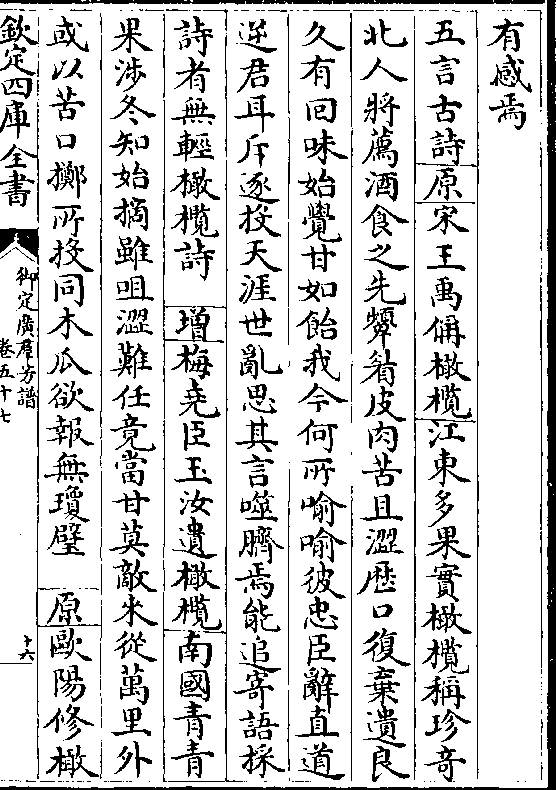 有感焉
五言古詩原宋王禹偁橄欖江東多果實橄欖稱珍奇
北人將薦酒食之先顰眉皮肉苦且澀歷口復棄遺良
久有回味始覺甘如飴我今何所喻喻彼忠臣辭直道
逆君耳斥逐投天涯世亂思其言噬臍焉能追寄語採
詩者無輕橄欖詩 增梅堯臣玉汝遺橄欖南國青青
果涉冬知始摘雖咀澀難任竟當甘莫敵來從萬里外
或以苦口擲所投同木瓜欲報無瓊璧 原歐陽修橄
欽定四庫全書
御定廣羣芳譜
卷五十七
十六